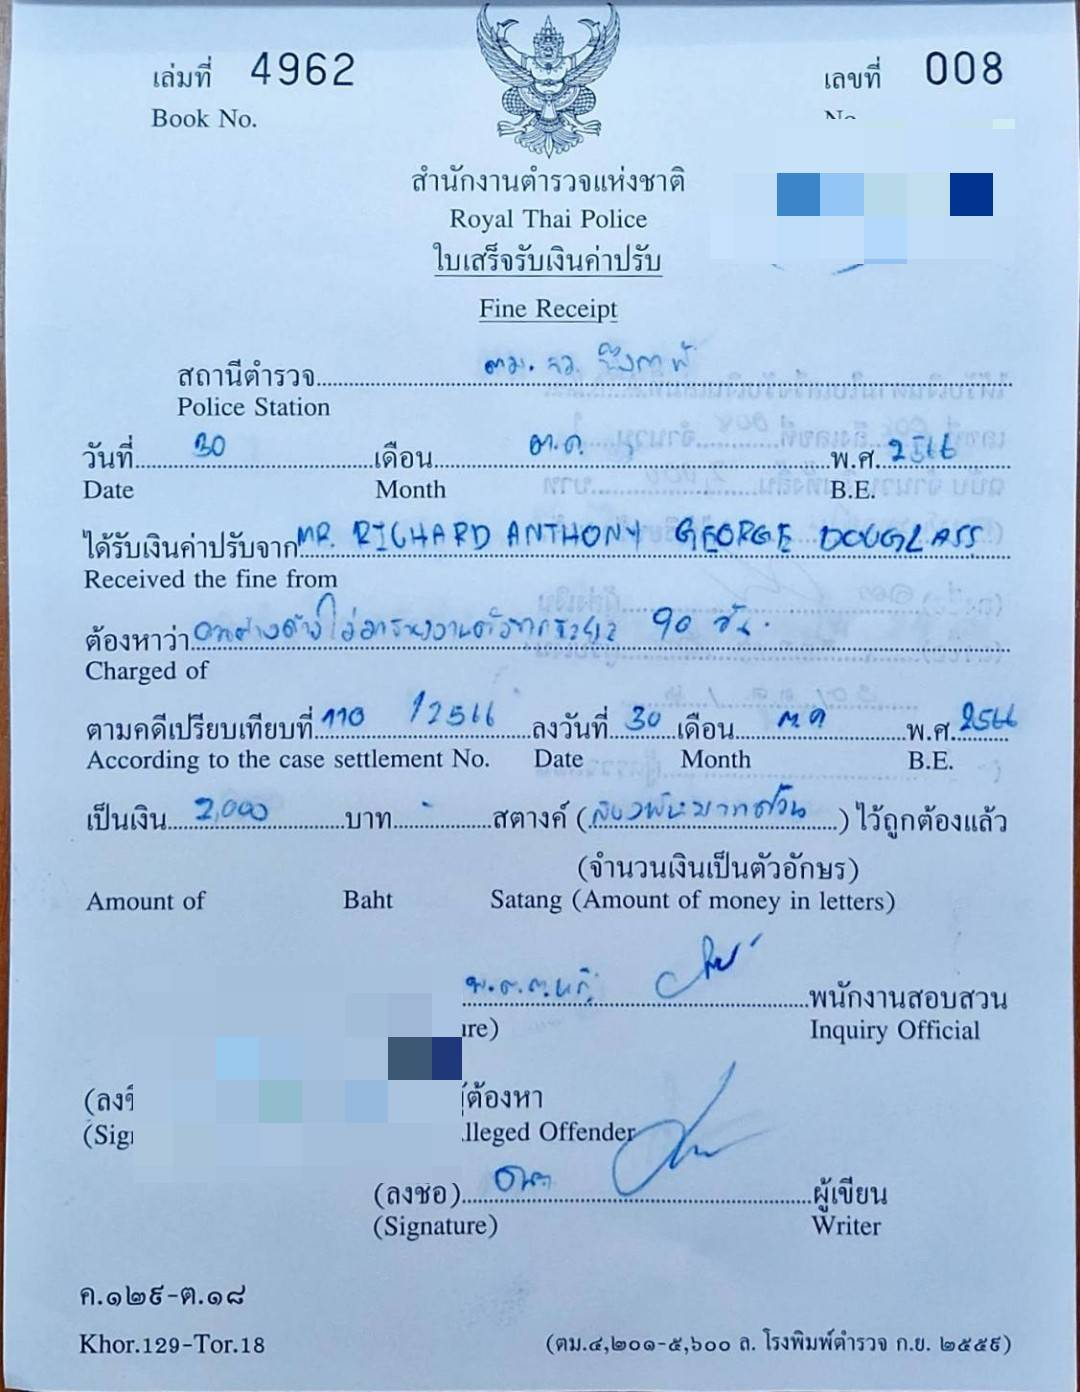 เล่มที่ 4962 เลขที่ 008
Book No.
สำนักงานตำรวจแห่งชาติ
Royal Thai Police
ใบเสร็จรับเงินค่าปรับ
Fine Receipt
สถานีตำรวจ ตม. จว.
Police Station
วันที่ 30 เดือน ต.ค. พ.ศ. 2566
Date Month B.E.
ได้รับเงินค่าปรับจาก MR. RICHARD ANTHONY GEORGE DOUGLASS
Received the fine from
ต้องหาว่า 90 วัน.
Charged of
ตามคดีเปรียบเทียบที่ 110 /2566 ลงวันที่ 30 เดือน ต.ค พ.ศ. 2566
According to the case settlement No. Date Month B.E.
เป็นเงิน 2,000 บาท - สตางค์ (สองพันบาทถ้วน) ไว้ถูกต้องแล้ว
(จำนวนเงินเป็นตัวอักษร)
Amount of Baht Satang (Amount of money in letters)
พ.ต.ต.หญิง พนักงานสอบสวน
Inquiry Official
ผู้ต้องหา
Alleged Offender
(ลงชื่อ) ผู้เขียน
(Signature) Writer
ค.๑๒๙-ต.๑๘
Khor.129-Tor.18 (ตม.๔,๒๐๑-๕,๖๐๐ ล. โรงพิมพ์ตำรวจ ก.ย. ๒๕๕๙)